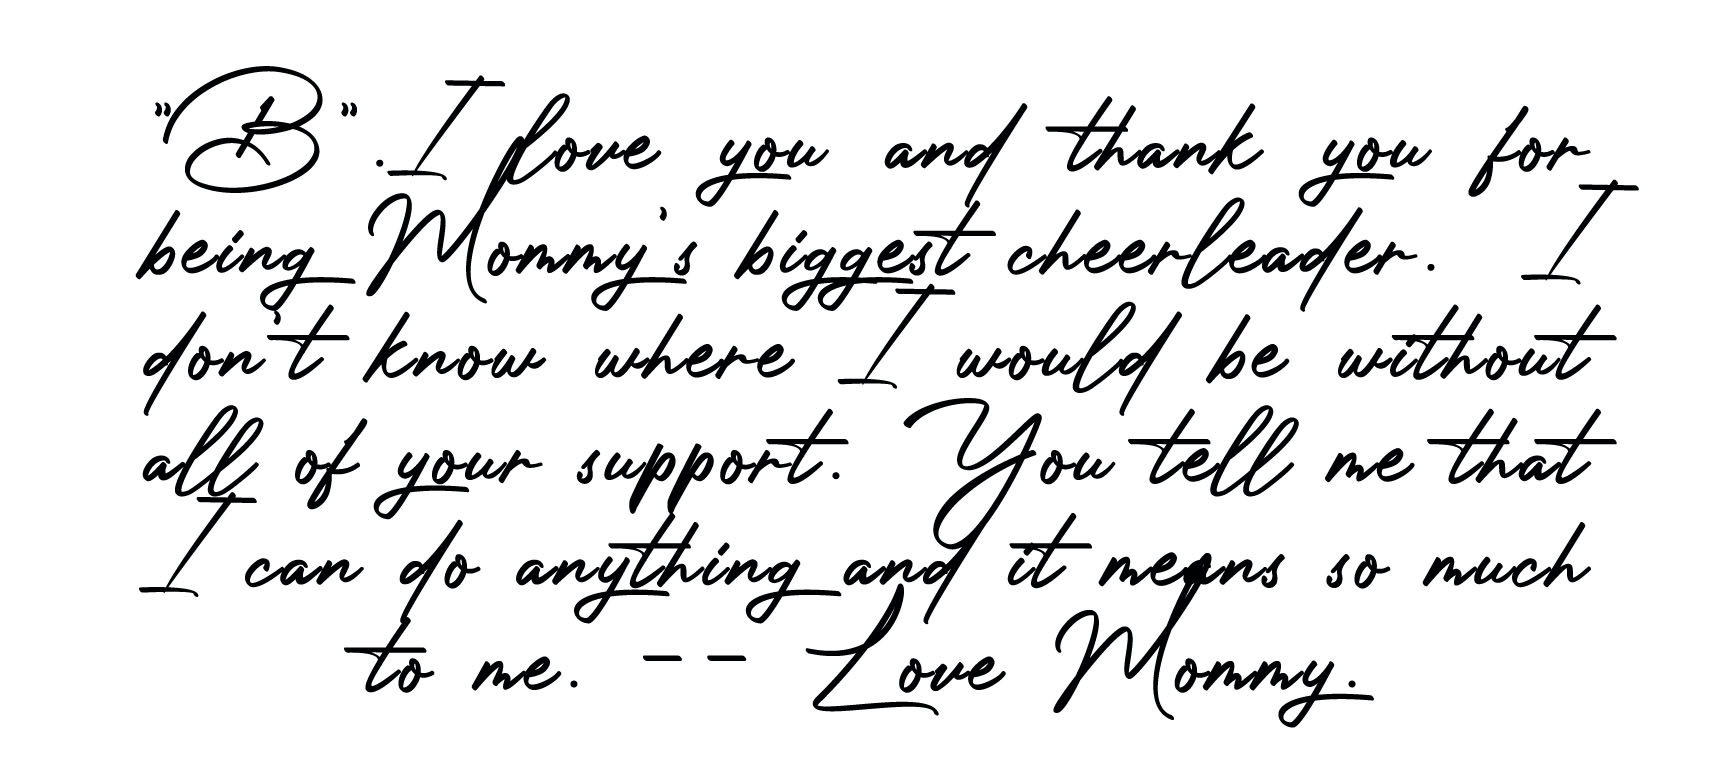 "B" .I love you and thank you for
being Mommy's biggest cheerleader. I
don't know where I would be without
all of your support. You tell me that
I can do anything and it means so much
to me. -- Love Mommy.